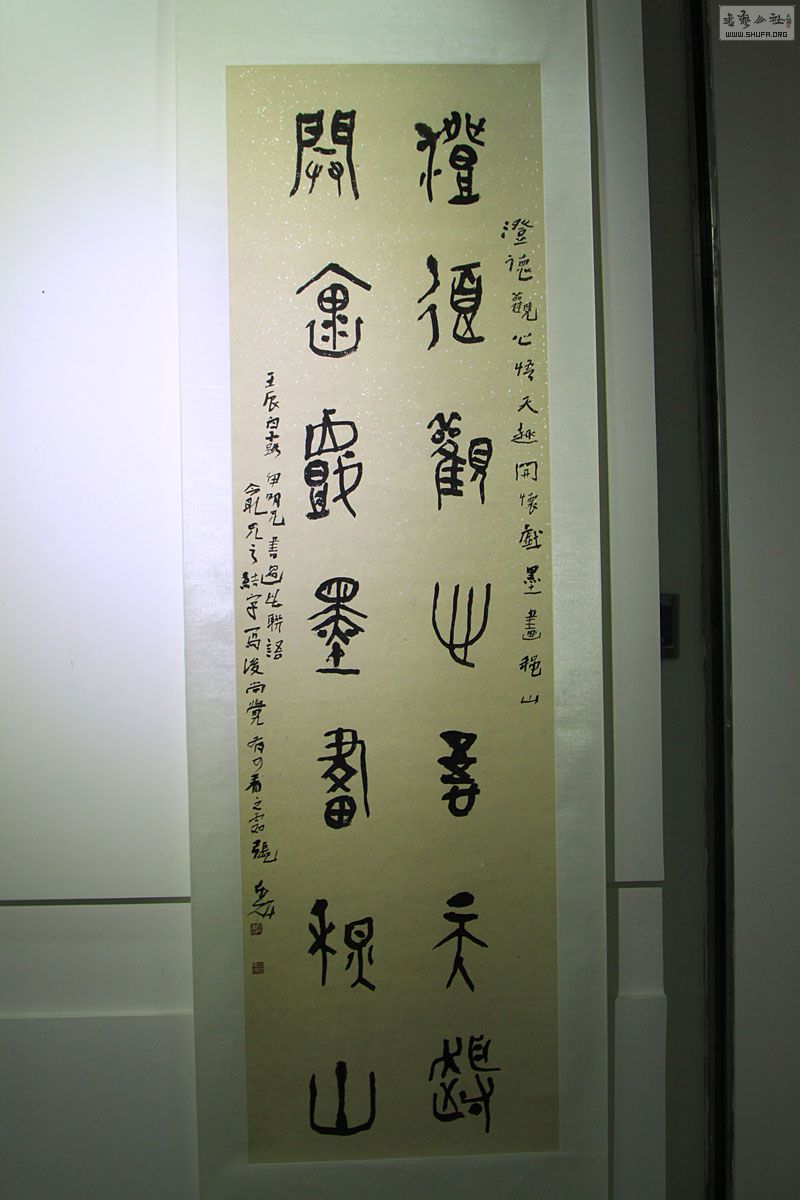 澄德觀心悟天趣
開懷戲墨畫穆山
澄德觀心悟天趣開懷戲墨畫穆山
壬辰白露伊明兄書過此聯語
兄之結字寫後尚覺有可看之處張
書藝公社
WWW.SHUFA.ORG